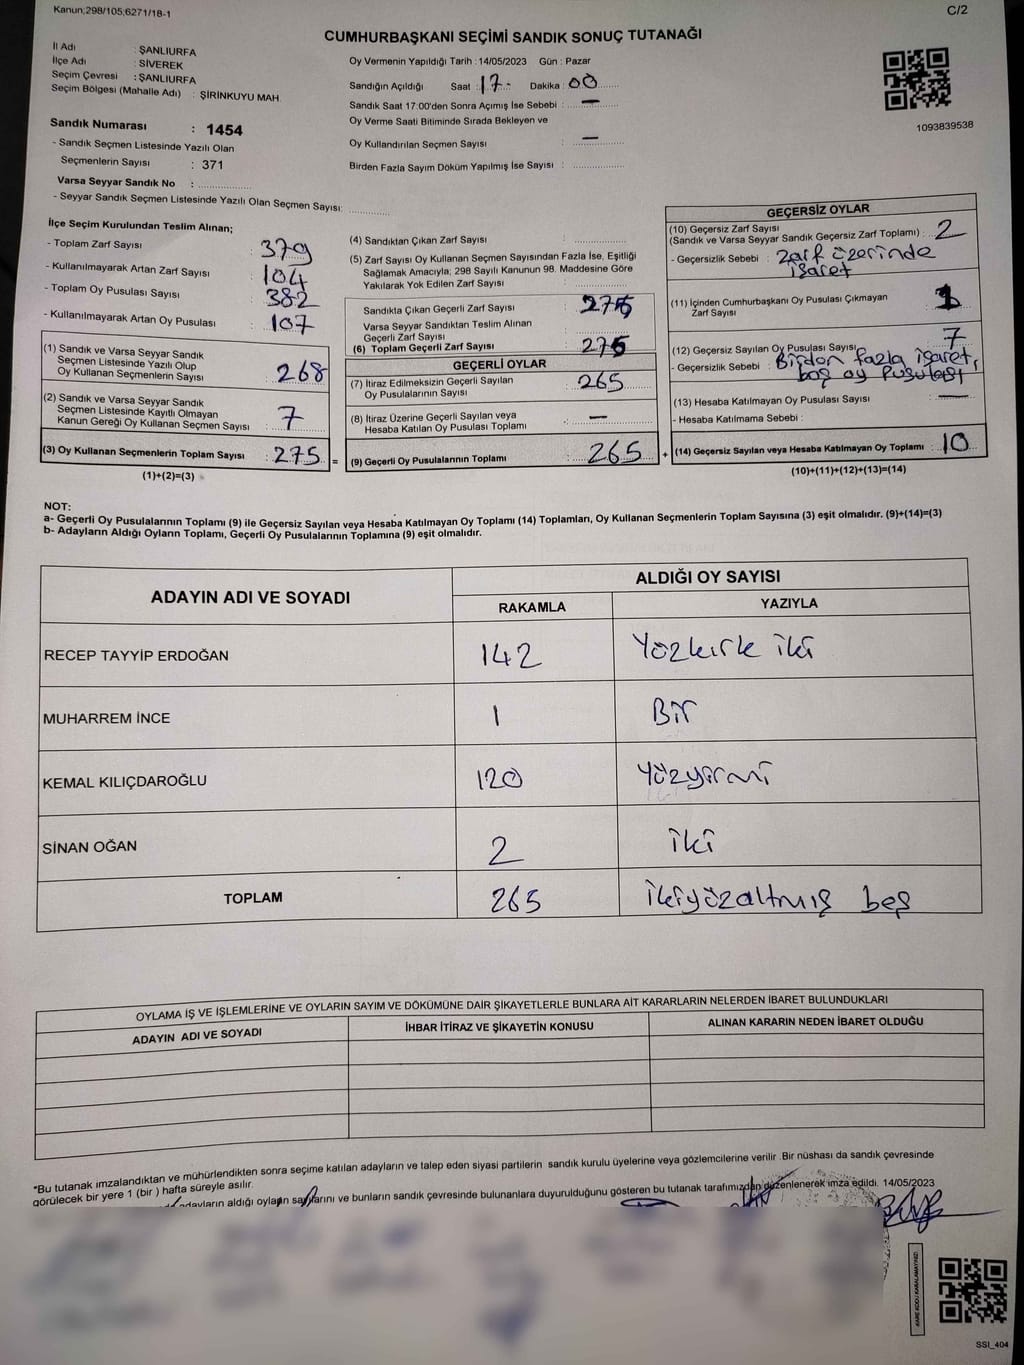 Kanun;298/105;6271/18-1
C/2
CUMHURBAŞKANI SEÇİMİ SANDIK SONUÇ TUTANAĞI
İl Adı : ŞANLIURFA
İlçe Adı : SİVEREK
Seçim Çevresi : ŞANLIURFA
Seçim Bölgesi (Mahalle Adı) : ŞİRİNKUYU MAH.
Sandık Numarası : 1454
- Sandık Seçmen Listesinde Yazılı Olan
Seçmenlerin Sayısı : 371
Varsa Seyyar Sandık No :
- Seyyar Sandık Seçmen Listesinde Yazılı Olan Seçmen Sayısı:
Oy Vermenin Yapıldığı Tarih : 14/05/2023 Gün : Pazar
Sandığın Açıldığı Saat : 17 Dakika : 00
Sandık Saat 17:00'den Sonra Açımış İse Sebebi : —
Oy Verme Saati Bitiminde Sırada Bekleyen ve
Oy Kullandırılan Seçmen Sayısı : —
Birden Fazla Sayım Döküm Yapılmış İse Sayısı :
1093839538
İlçe Seçim Kurulundan Teslim Alınan;
- Toplam Zarf Sayısı : 379
- Kullanılmayarak Artan Zarf Sayısı : 104
- Toplam Oy Pusulası Sayısı : 382
- Kullanılmayarak Artan Oy Pusulası : 107
(1) Sandık ve Varsa Seyyar Sandık
Seçmen Listesinde Yazılı Olup
Oy Kullanan Seçmenlerin Sayısı : 268
(2) Sandık ve Varsa Seyyar Sandık
Seçmen Listesinde Kayıtlı Olmayan
Kanun Gereği Oy Kullanan Seçmen Sayısı : 7
(3) Oy Kullanan Seçmenlerin Toplam Sayısı : 275
(1)+(2)=(3)
=
(4) Sandıktan Çıkan Zarf Sayısı :
(5) Zarf Sayısı Oy Kullanan Seçmen Sayısından Fazla İse, Eşitliği
Sağlamak Amacıyla; 298 Sayılı Kanunun 98. Maddesine Göre
Yakılarak Yok Edilen Zarf Sayısı :
Sandıkta Çıkan Geçerli Zarf Sayısı : 275
Varsa Seyyar Sandıktan Teslim Alınan
Geçerli Zarf Sayısı :
(6) Toplam Geçerli Zarf Sayısı : 275
GEÇERLİ OYLAR
(7) İtiraz Edilmeksizin Geçerli Sayılan
Oy Pusulalarının Sayısı : 265
(8) İtiraz Üzerine Geçerli Sayılan veya
Hesaba Katılan Oy Pusulası Toplamı : —
(9) Geçerli Oy Pusulalarının Toplamı : 265
+
GEÇERSİZ OYLAR
(10) Geçersiz Zarf Sayısı
(Sandık ve Varsa Seyyar Sandık Geçersiz Zarf Toplamı) : 2
- Geçersizlik Sebebi : Zarf üzerinde
işaret
(11) İçinden Cumhurbaşkanı Oy Pusulası Çıkmayan
Zarf Sayısı : 1
(12) Geçersiz Sayılan Oy Pusulası Sayısı : 7
- Geçersizlik Sebebi : Birden fazla işaret,
boş oy Pusulası
(13) Hesaba Katılmayan Oy Pusulası Sayısı : —
- Hesaba Katılmama Sebebi :
(14) Geçersiz Sayılan veya Hesaba Katılmayan Oy Toplamı : 10
(10)+(11)+(12)+(13)=(14)
NOT:
a- Geçerli Oy Pusulalarının Toplamı (9) ile Geçersiz Sayılan veya Hesaba Katılmayan Oy Toplamı (14) Toplamları, Oy Kullanan Seçmenlerin Toplam Sayısına (3) eşit olmalıdır. (9)+(14)=(3)
b- Adayların Aldığı Oyların Toplamı, Geçerli Oy Pusulalarının Toplamına (9) eşit olmalıdır.
ADAYIN ADI VE SOYADI
ALDIĞI OY SAYISI
RAKAMLA YAZIYLA
RECEP TAYYİP ERDOĞAN 142 Yözkırk iki
MUHARREM İNCE 1 Bir
KEMAL KILIÇDAROĞLU 120 Yüzyirmi
SİNAN OĞAN 2 iki
TOPLAM 265 ikiyüzaltmış beş
OYLAMA İŞ VE İŞLEMLERİNE VE OYLARIN SAYIM VE DÖKÜMÜNE DAİR ŞİKAYETLERLE BUNLARA AİT KARARLARIN NELERDEN İBARET BULUNDUKLARI
ADAYIN ADI VE SOYADI İHBAR İTİRAZ VE ŞİKAYETİN KONUSU ALINAN KARARIN NEDEN İBARET OLDUĞU
*Bu tutanak imzalandıktan ve mühürlendikten sonra seçime katılan adayların ve talep eden siyasi partilerin sandık kurulu üyelerine veya gözlemcilerine verilir .Bir nüshası da sandık çevresinde
görülecek bir yere 1 (bir ) hafta süreyle asılır.
adayların aldığı oyların sayılarını ve bunların sandık çevresinde bulunanlara duyurulduğunu gösteren bu tutanak tarafımızdan düzenlenerek imza edildi. 14/05/2023
KARE KODU KARALAMAYINIZ!
SSI_404